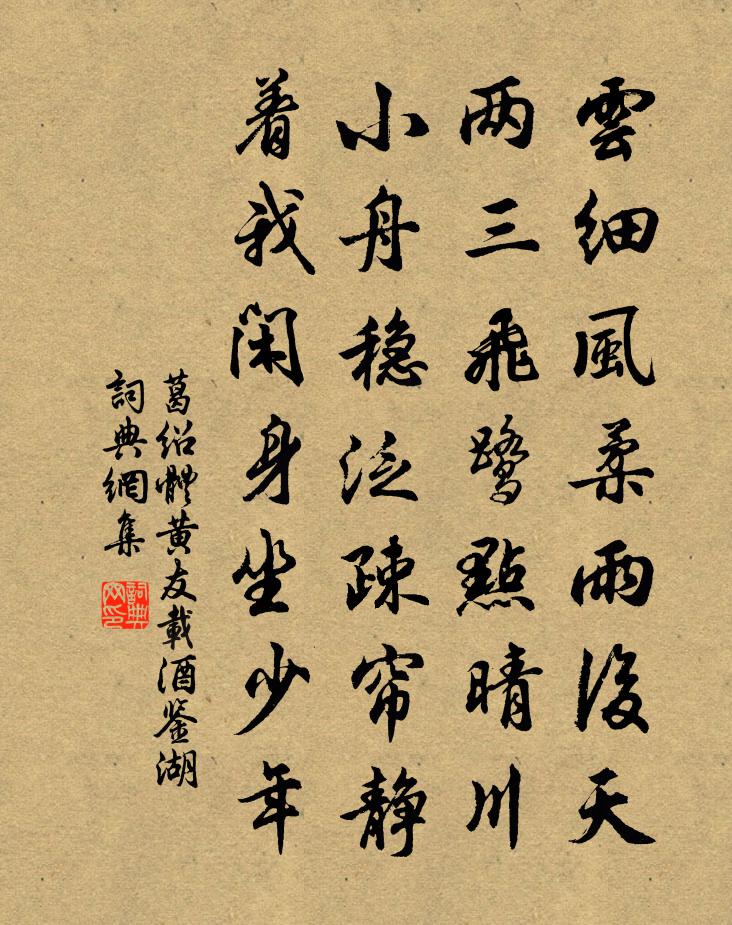 雲細風柔雨後天
两三飛鹭點晴川
小舟穏泛疎帘静
着我闲身坐少年
葛绍體黄友載酒鉴湖
詞典網集
詞典网印